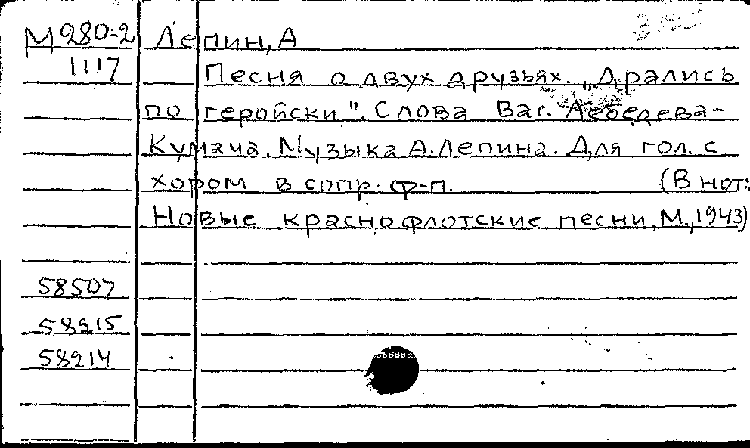 М280-2 Лепин, А
1117 Песня о двух друзьях. „Дрались
по геройски". Слова Вас. Лебедева-
Кумача. Музыка А. Лепина. Для гол. с
хором в сопр. ф-п. (В нот:
Новые краснофлотские песни, М., 1943)
58507
58215
58214